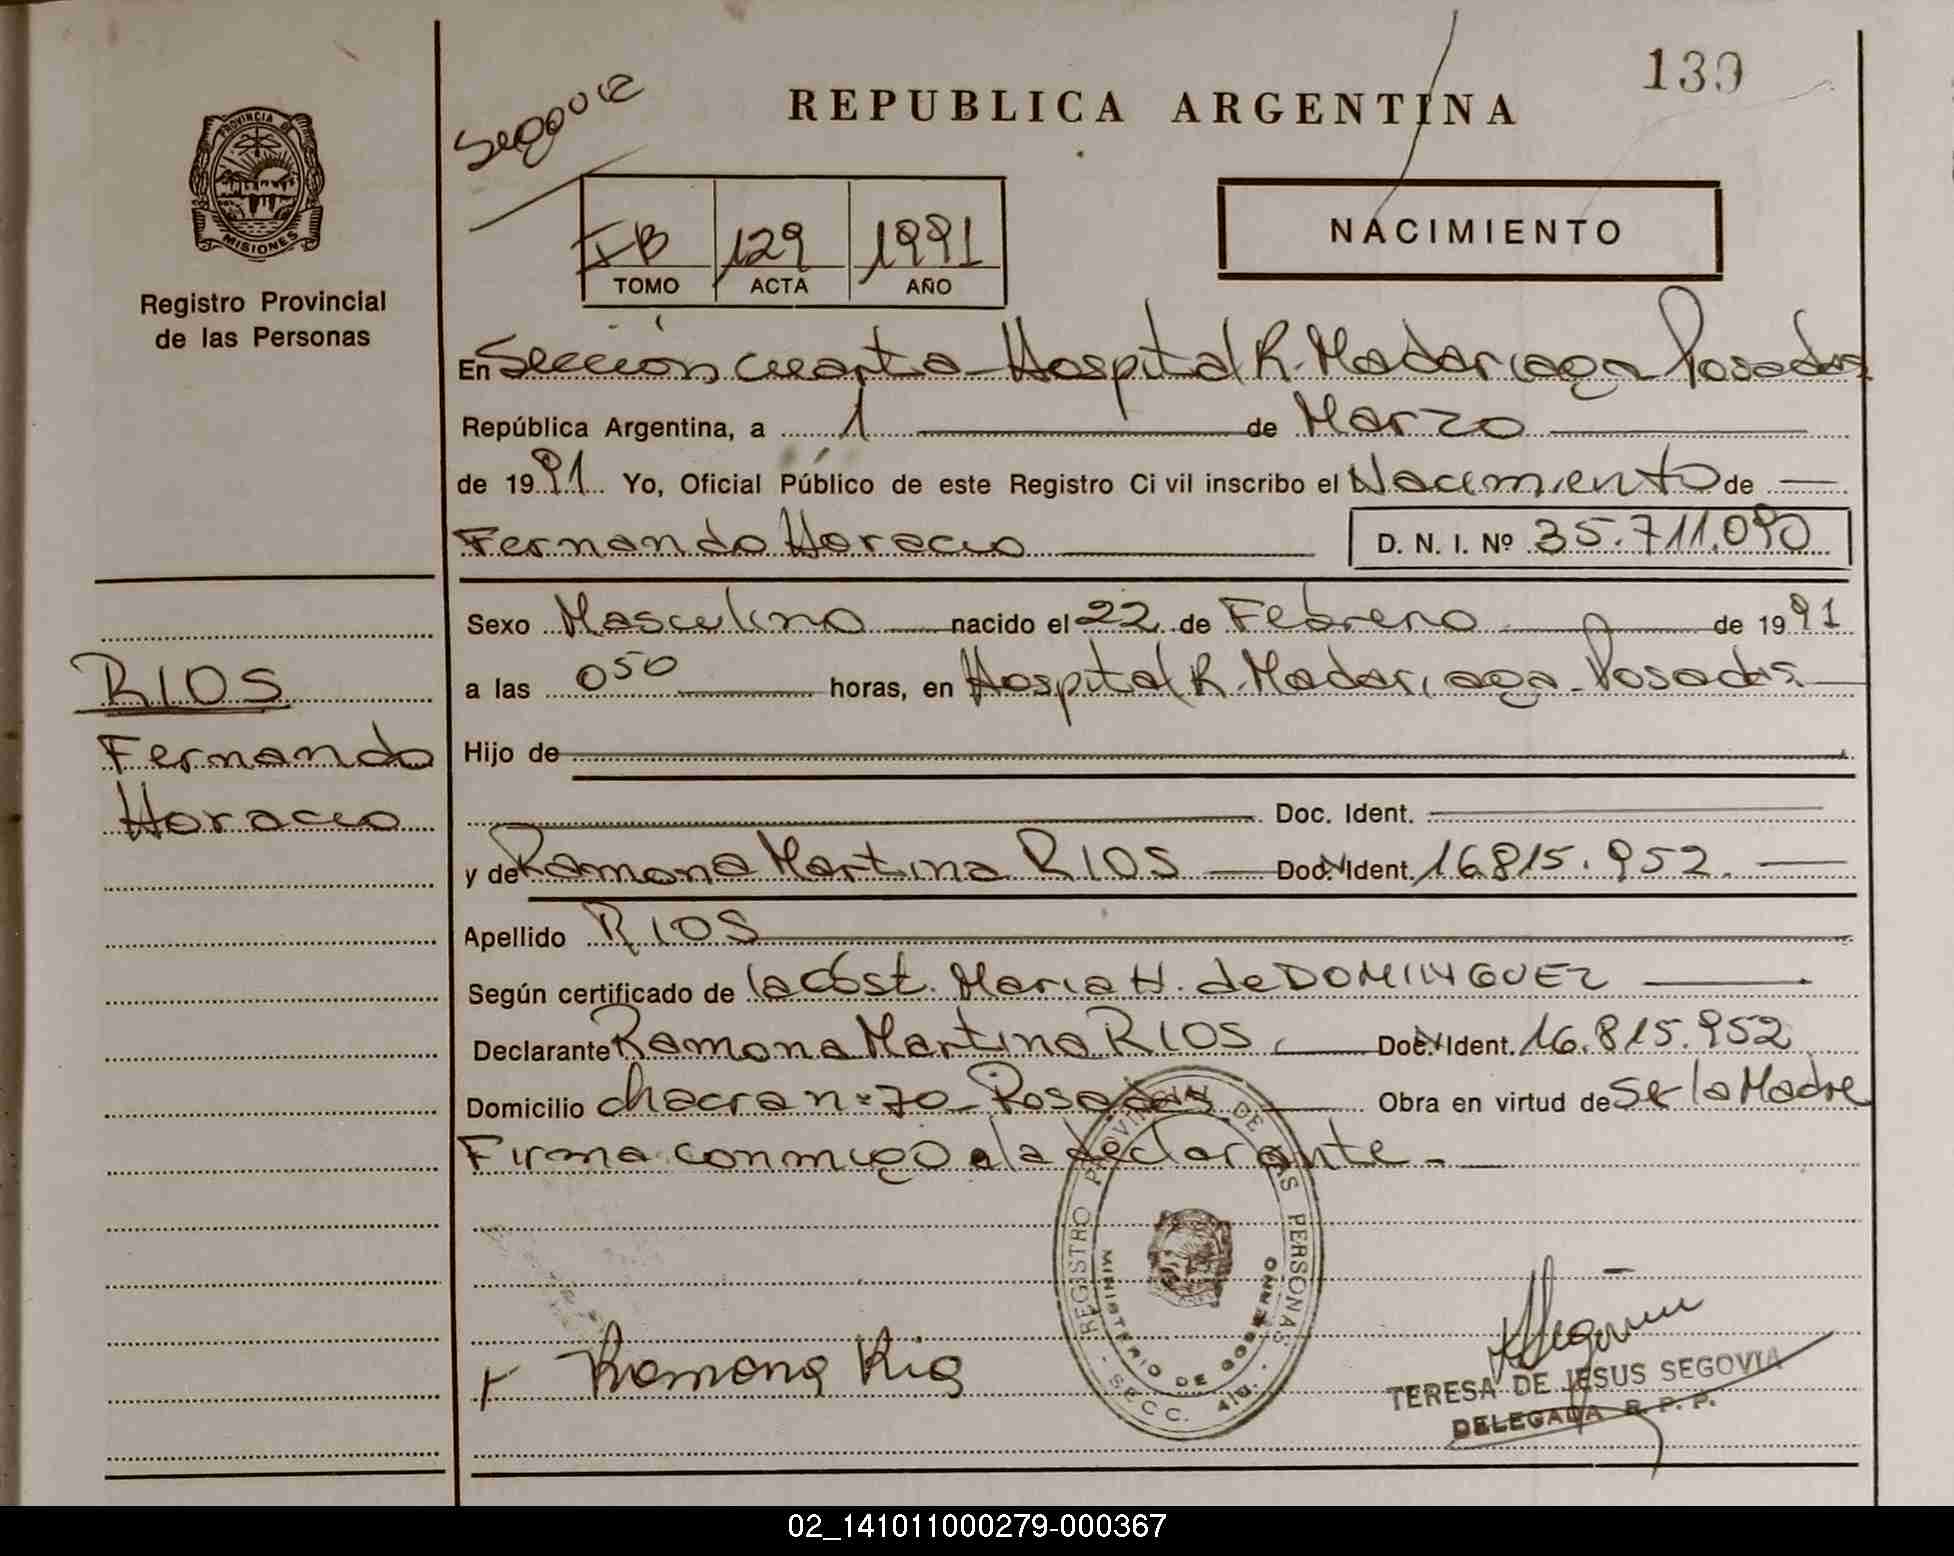 139
REPUBLICA ARGENTINA
Segovia
PROVINCIA DE
MISIONES
Registro Provincial
de las Personas
IB 129 1991
TOMO ACTA AÑO
NACIMIENTO
En Sección cuarta - Hospital R. Madariaga Posadas
República Argentina, a 1 de Marzo
de 1991 Yo, Oficial Público de este Registro Civil inscribo el Nacimiento de
Fernando Horacio D. N. I. Nº 35.711.090
Sexo Masculino nacido el 22 de Febrero de 1991
RIOS
Fernando
Horacio
a las 050 horas, en Hospital R. Madariaga - Posadas
Hijo de
Doc. Ident.
y de Ramona Martina RIOS Doc. Ident. 16.815.952
Apellido RIOS
Según certificado de la Obst. Maria H. de DOMINGUEZ
Declarante Ramona Martina RIOS Doc. Ident. 16.815.952
Domicilio chacra nº 70 - Posadas Obra en virtud de Ser la Madre
Firma conmigo a la declarante -
REGISTRO PROVINCIAL DE LAS PERSONAS
MINISTERIO DE GOBIERNO
SECC. 4ta.
Ramona Rios
Segovia
TERESA DE JESUS SEGOVIA
DELEGADA R. P. P.
02_141011000279-000367